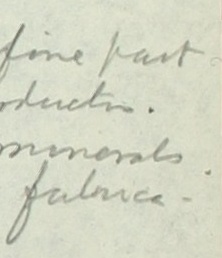 fine part
oducts.
minerals
fabrics.